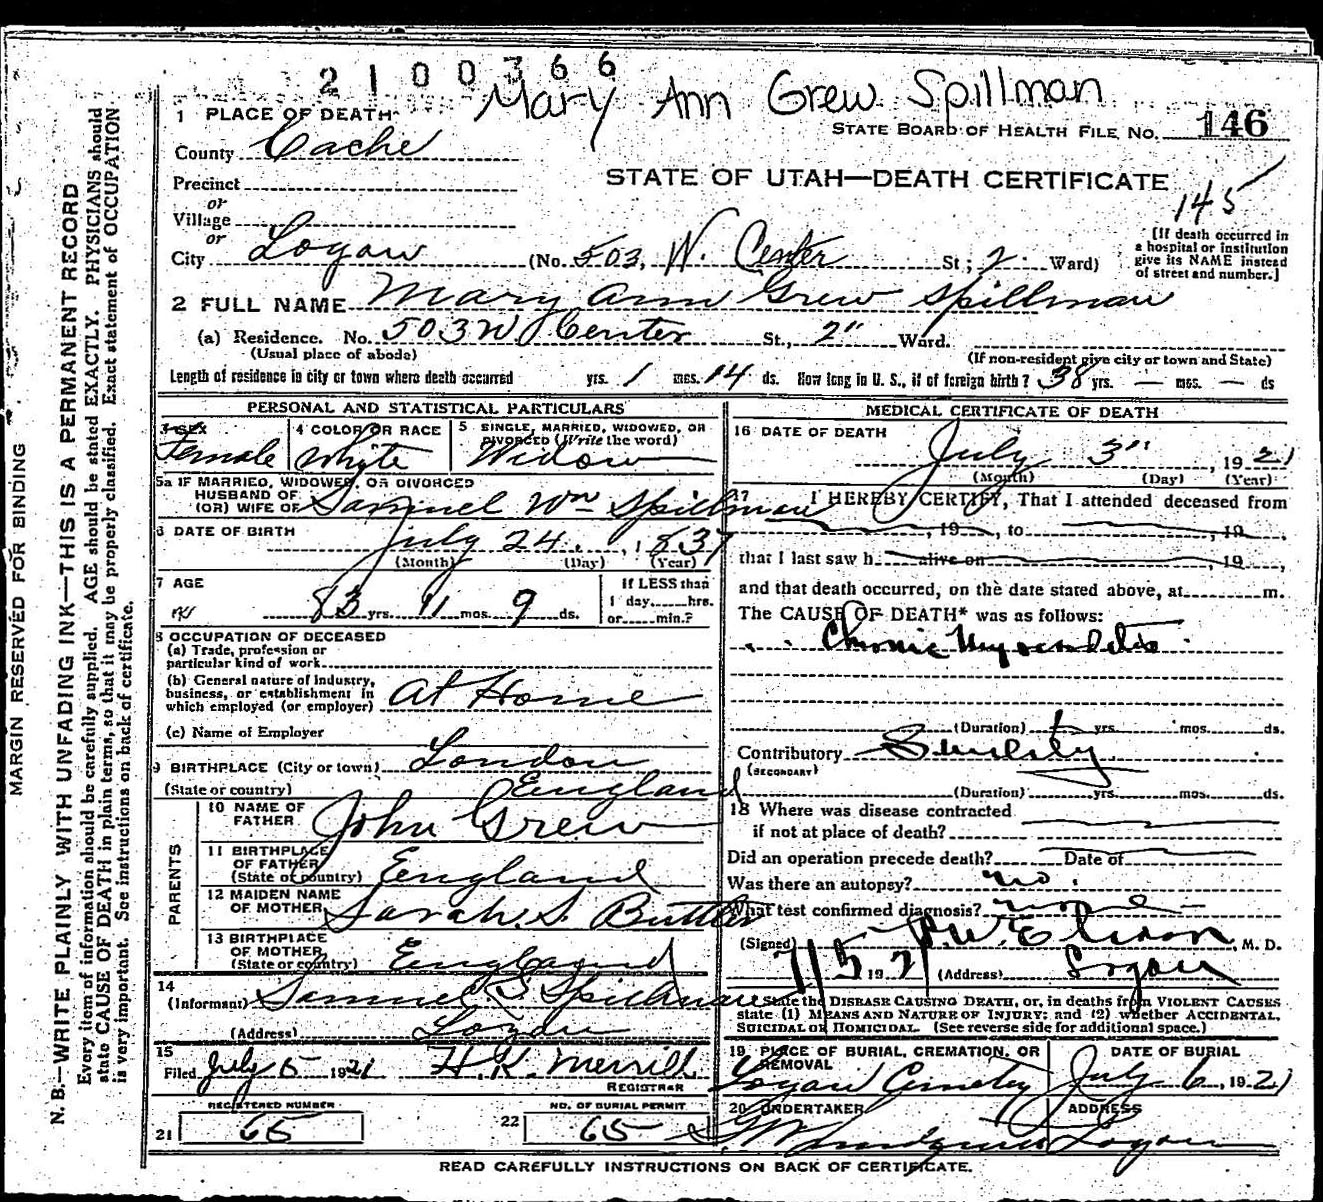 2100366
Mary Ann Grew Spillman
1 PLACE OF DEATH
STATE BOARD OF HEALTH FILE NO. 146
County Cache
STATE OF UTAH—DEATH CERTIFICATE
145
Precinct
or
Village
or
City Logan (No. 503, W. Center St; 2 Ward)
[If death occurred in
a hospital or institution
give its NAME instead
of street and number.]
2 FULL NAME Mary Ann Grew Spillman
(a) Residence. No. 503 W Center St., 2" Ward.
(Usual place of abode)
(If non-resident give city or town and State)
Length of residence in city or town where death occurred yrs. 1 mos. 14 ds. How long in U. S., if of foreign birth? 38 yrs. — mos. — ds
PERSONAL AND STATISTICAL PARTICULARS
3 SEX
Female
4 COLOR OR RACE
Whyte
5 SINGLE, MARRIED, WIDOWED, OR
DIVORCED (Write the word)
Widow
5a IF MARRIED, WIDOWED, OR DIVORCED
HUSBAND OF
(OR) WIFE OF Samuel Wm Spillman
6 DATE OF BIRTH
July 24, 1837
(Month) (Day) (Year)
7 AGE
83 yrs. 11 mos. 9 ds.
If LESS than
1 day......hrs.
or......min.?
8 OCCUPATION OF DECEASED
(a) Trade, profession or
particular kind of work
(b) General nature of industry,
business, or establishment in
which employed (or employer) at Home
(c) Name of Employer
9 BIRTHPLACE (City or town) London
(State or country) England
PARENTS
10 NAME OF
FATHER John Grew
11 BIRTHPLACE
OF FATHER
(State or country) England
12 MAIDEN NAME
OF MOTHER Sarah S. Buttler
13 BIRTHPLACE
OF MOTHER
(State or country) England
14
(Informant) Samuel S Spillman
(Address) Logan
15
Filed July 5 1921 H. K. Merrill
REGISTRAR
REGISTERED NUMBER
21 65
NO. OF BURIAL PERMIT
22 65
MEDICAL CERTIFICATE OF DEATH
16 DATE OF DEATH
July 3", 1921
(Month) (Day) (Year)
17 I HEREBY CERTIFY, That I attended deceased from
, 19 , to , 19
that I last saw h alive on , 19
and that death occurred, on the date stated above, at m.
The CAUSE OF DEATH* was as follows:
Chronic Myocarditis
(Duration) yrs. mos. ds.
Contributory Senility
(SECONDARY)
(Duration) yrs. mos. ds.
18 Where was disease contracted
if not at place of death?
Did an operation precede death? Date of
Was there an autopsy? no.
What test confirmed diagnosis? none
(Signed) M. D.
7/5 1921 (Address) Logan
State the DISEASE CAUSING DEATH, or, in deaths from VIOLENT CAUSES
state (1) MEANS AND NATURE OF INJURY; and (2) whether ACCIDENTAL,
SUICIDAL OR HOMICIDAL. (See reverse side for additional space.)
19 PLACE OF BURIAL, CREMATION, OR
REMOVAL
Logan Cemetery
DATE OF BURIAL
July 6, 1921
20 UNDERTAKER
ADDRESS
Logan
READ CAREFULLY INSTRUCTIONS ON BACK OF CERTIFICATE.
MARGIN RESERVED FOR BINDING
N. B.—WRITE PLAINLY WITH UNFADING INK—THIS IS A PERMANENT RECORD
Every item of information should be carefully supplied. AGE should be stated EXACTLY. PHYSICIANS should
state CAUSE OF DEATH in plain terms, so that it may be properly classified. Exact statement of OCCUPATION
is very important. See instructions on back of certificate.